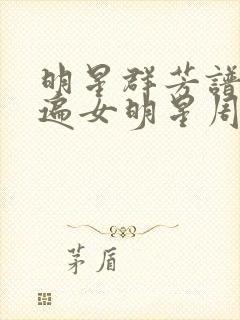 明星群芳譜
遍女明星周
茅盾